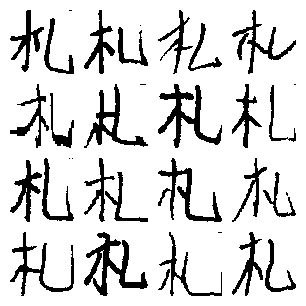 札札札札
札札札札
札札札札
札札札札